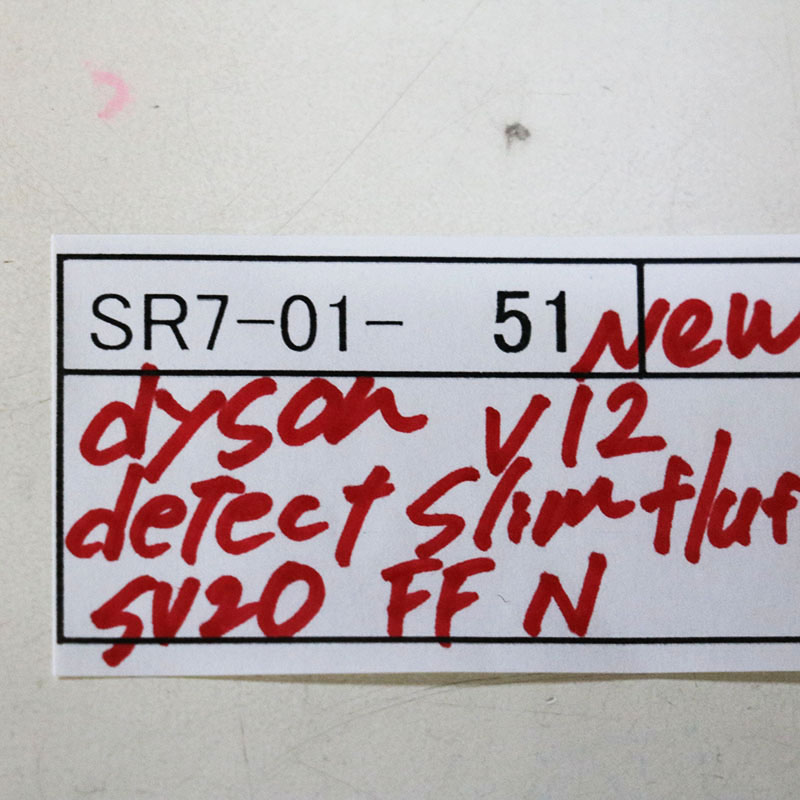 SR7-01- 51 New
dyson V12
detect slim fluf
SV20 FF N